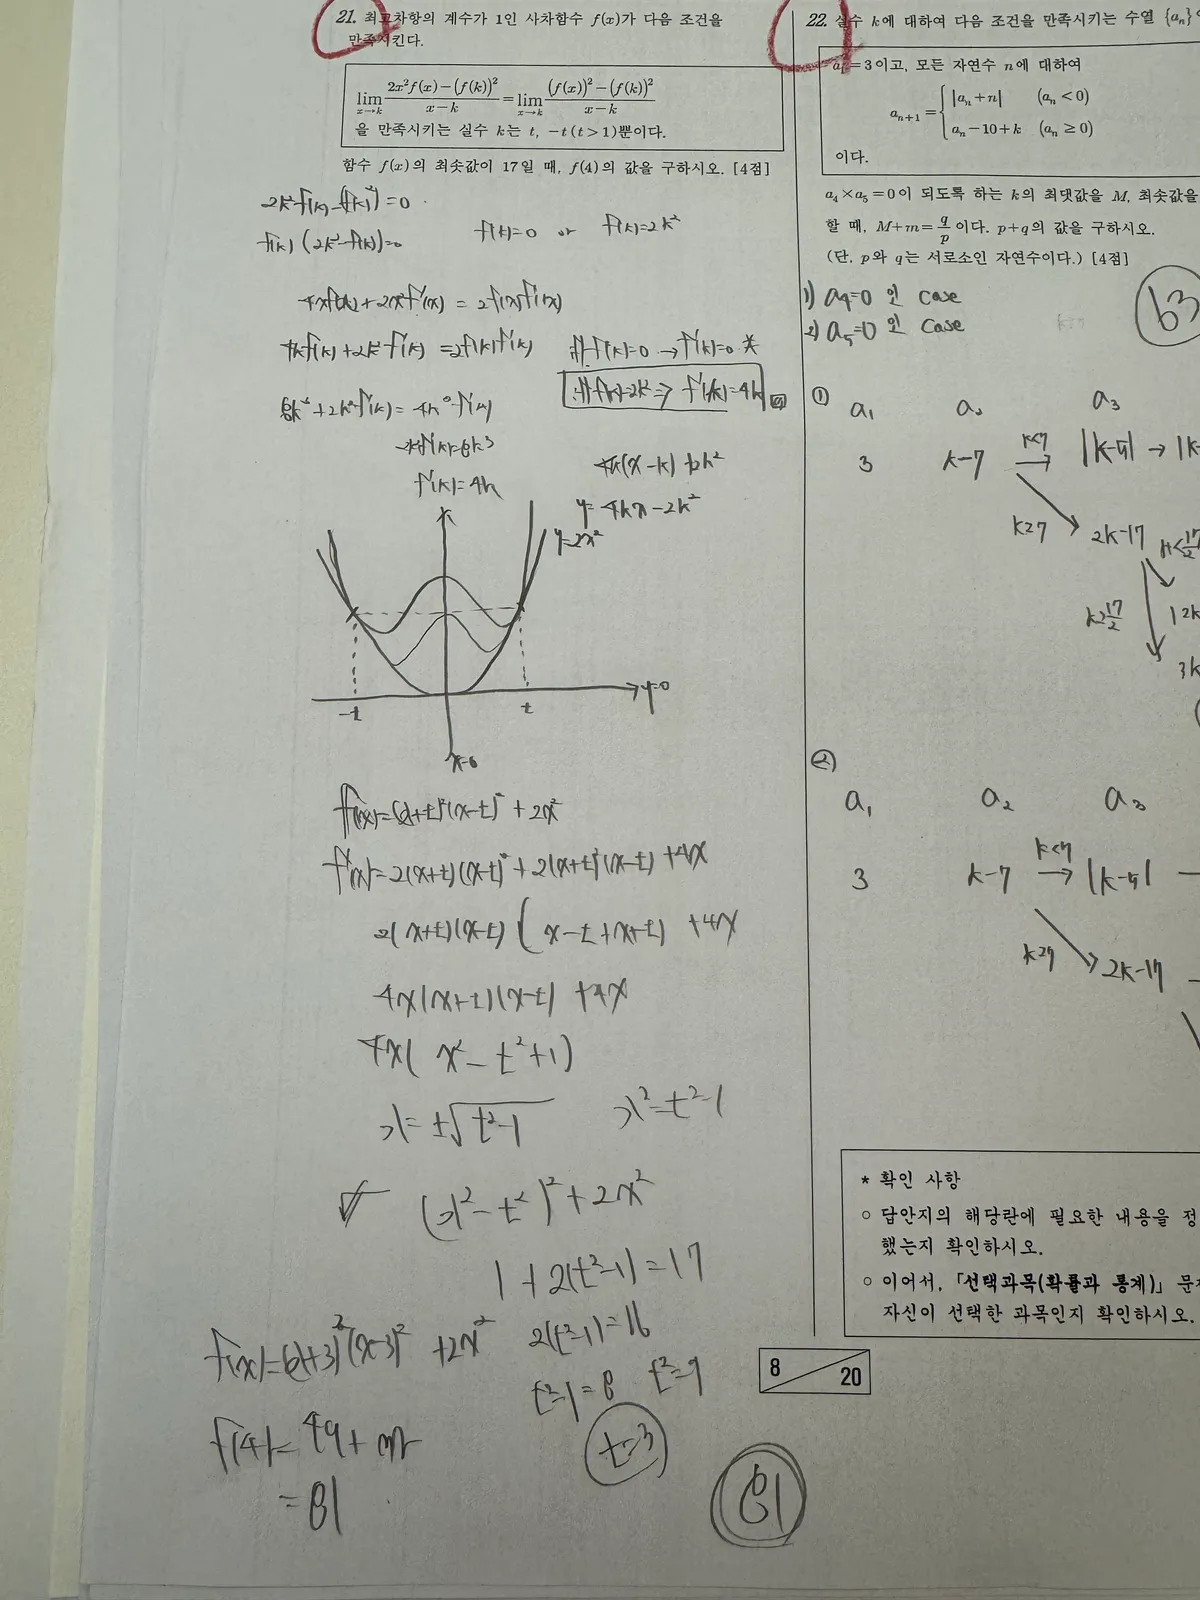 21. 최고차항의 계수가 1인 사차함수 f(x)가 다음 조건을
만족시킨다.
lim x→k (2x²f(x)−(f(k))²)/(x−k) = lim x→k ((f(x))²−(f(k))²)/(x−k)
을 만족시키는 실수 k는 t, −t(t>1)뿐이다.
함수 f(x)의 최솟값이 17일 때, f(4)의 값을 구하시오. [4점]
f(k)(2k²−f(k))=0
f(k)=0 or f(k)=2k²
4kf(k)+2k²f'(k)=2f(k)f'(k)
f'(k)=4k
y=4kx−2k²
y=2x²
y=0
−t
t
f(x)=(x+t)²(x−t)²+2x²
f'(x)=2(x+t)(x−t)²+2(x+t)²(x−t)+4x
2(x+t)(x−t)(x−t+x+t)+4x
4x(x+t)(x−t)+4x
4x(x²−t²+1)
x=±√t²−1
x²=t²−1
(x²−t²)²+2x²
1+2(t²−1)=17
2(t²−1)=16
t²−1=8 t²=9
t=3
f(x)=(x+3)²(x−3)²+2x²
f(4)=49+32
=81
81
22. 실수 k에 대하여 다음 조건을 만족시키는 수열 {aₙ}
a₁=3이고, 모든 자연수 n에 대하여
aₙ₊₁= { |aₙ+n| (aₙ<0)
aₙ−10+k (aₙ≥0)
이다.
a₄×a₅=0이 되도록 하는 k의 최댓값을 M, 최솟값을
할 때, M+m=q/p이다. p+q의 값을 구하시오.
(단, p와 q는 서로소인 자연수이다.) [4점]
1) a₄=0 인 case
2) a₅=0 인 case
63
① a₁ a₂ a₃
3 k−7 k<7 → |k−5| → |k−
k≥7 2k−17 k<17/2
k≥17/2
3k
② a₁ a₂ a₃
3 k−7 k<7 → |k−5|
k≥7 2k−17
* 확인 사항
○ 답안지의 해당란에 필요한 내용을 정
했는지 확인하시오.
○ 이어서, 「선택과목(확률과 통계)」 문
자신이 선택한 과목인지 확인하시오.
8 20